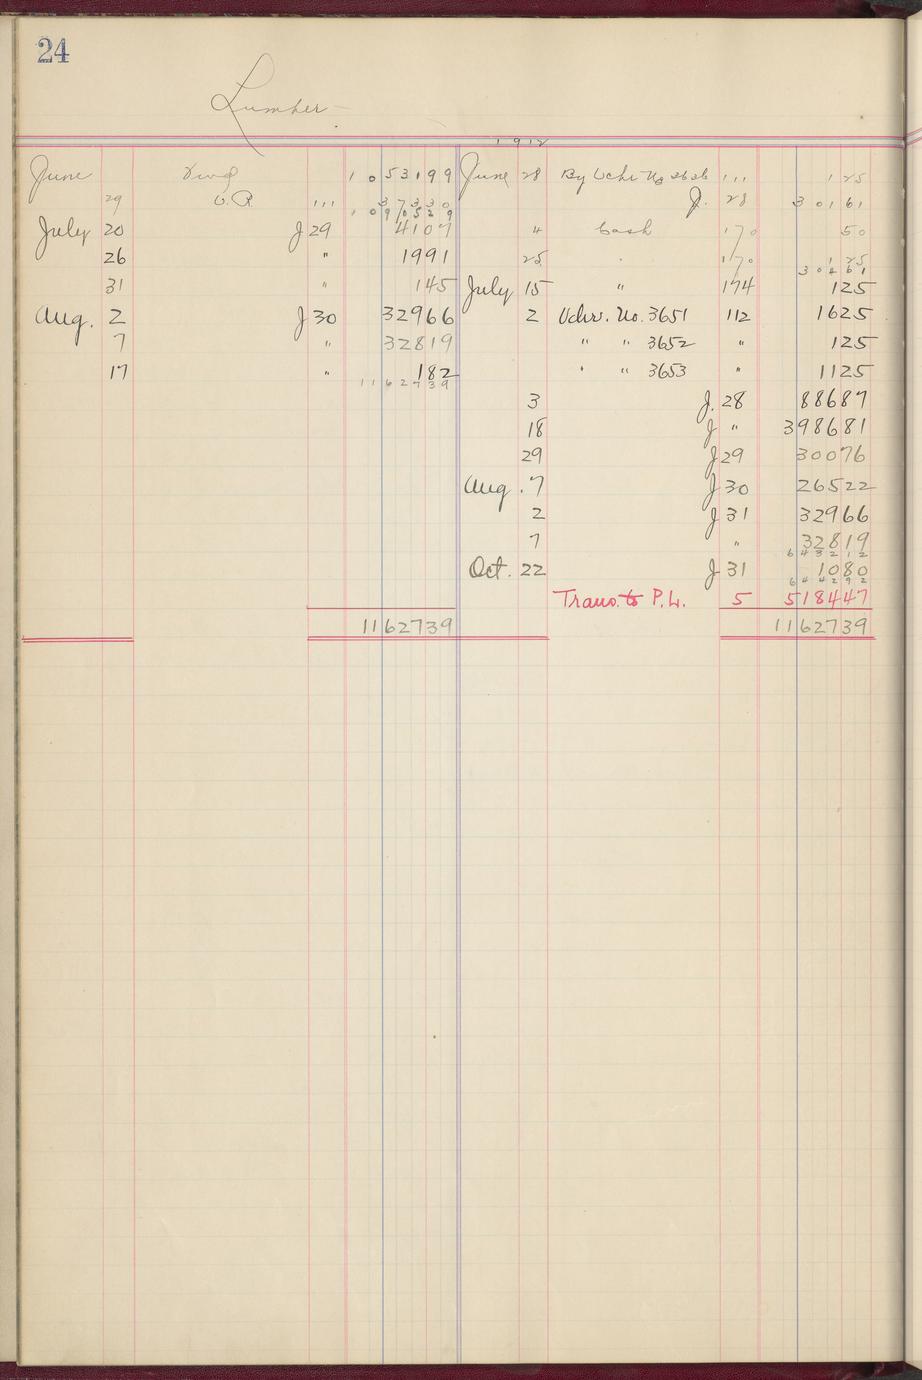 24
Lumber
1912
June 1053199 June 28 By Vchr No 3626 111 125
29 V.R. 111 37330 J. 28 30161
1090529
July 20 J29 4107 " Cash 170 50
26 " 1991 25 " 170 125
30461
31 " 145 July 15 " 174 125
Aug. 2 J30 32966 2 Vchr. No. 3651 112 1625
7 " 32819 " " 3652 " 125
17 " 182 " " 3653 " 1125
1162739
3 J. 28 88687
18 J " 398681
29 J29 30076
Aug. 7 J30 26522
2 J31 32966
7 " 32819
643212
Oct. 22 J31 1080
644292
Trans. to P. L. 5 518447
1162739 1162739